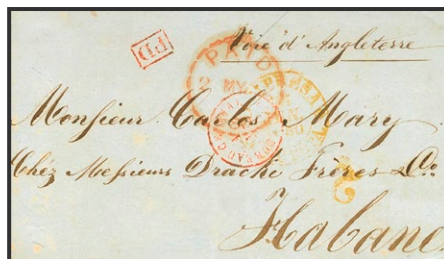 PD
Voie d'Angleterre
PAID
Monsieur Carlos Mary
Chéz Messieurs Drache Frères & Co
Habane